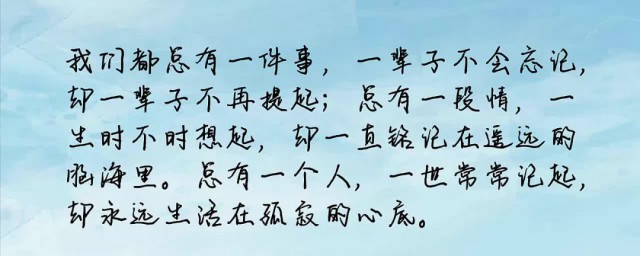 我们都总有一件事，一辈子不会忘记，
却一辈子不再提起；总有一段情，一
生时不时想起，却一直铭记在遥远的
脑海里。总有一个人，一世常常记起，
却永远生活在孤寂的心底。